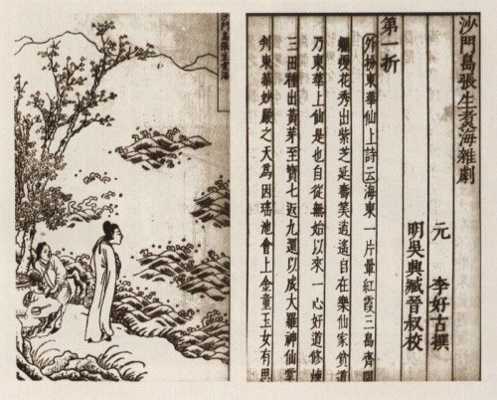 沙門島張生煑海
沙門島張生煑海雜劇
元 李好古撰
明吳興臧晉叔校
第一折
外扮東華仙上詩云海東一片暈紅霞三島齊開
爛熳花秀出紫芝延壽筭逍遙自在樂仙家貧道
乃東華上仙是也自從無始以來一心好道修煉
三田種出黃芽至寶七返九還以成大羅神仙掌
判東華妙嚴之天為因瑤池會上金童玉女有思